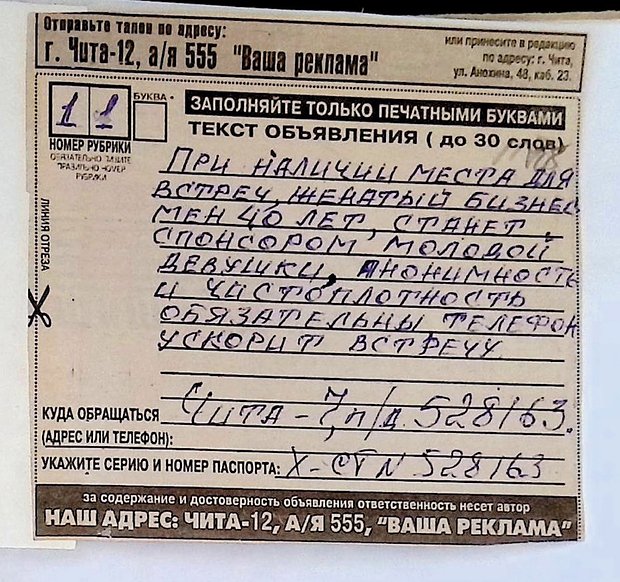 Отправьте талон по адресу:
г. Чита-12, а/я 555 "Ваша реклама"
или принесите в редакцию
по адресу: г. Чита,
ул. Анохина, 48, каб. 23.
1 1
НОМЕР РУБРИКИ
ОБЯЗАТЕЛЬНО ПИШИТЕ
ПРАВИЛЬНО НОМЕР
РУБРИКИ
БУКВА
ЗАПОЛНЯЙТЕ ТОЛЬКО ПЕЧАТНЫМИ БУКВАМИ
ТЕКСТ ОБЪЯВЛЕНИЯ ( до 30 слов)
ПРИ НАЛИЧИИ МЕСТА ДЛЯ
ВСТРЕЧ, ЖЕНАТЫЙ БИЗНЕС
МЕН 40 ЛЕТ, СТАНЕТ
СПОНСОРОМ МОЛОДОЙ
ДЕВУШКИ, АНОНИМНОСТЬ
И ЧИСТОПЛОТНОСТЬ
ОБЯЗАТЕЛЬНЫ ТЕЛЕФОН
УСКОРИТ ВСТРЕЧУ
ЛИНИЯ ОТРЕЗА
КУДА ОБРАЩАТЬСЯ ЧИТА-7, п/д 528163.
(АДРЕС ИЛИ ТЕЛЕФОН):
УКАЖИТЕ СЕРИЮ И НОМЕР ПАСПОРТА: X-СТ N 528163
за содержание и достоверность объявления ответственность несет автор
НАШ АДРЕС: ЧИТА-12, А/Я 555, "ВАША РЕКЛАМА"